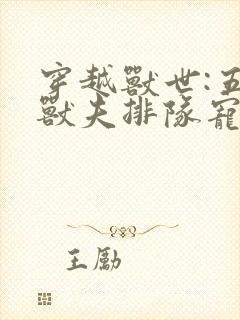 穿越獸世:五
獸夫排隊寵
王勵